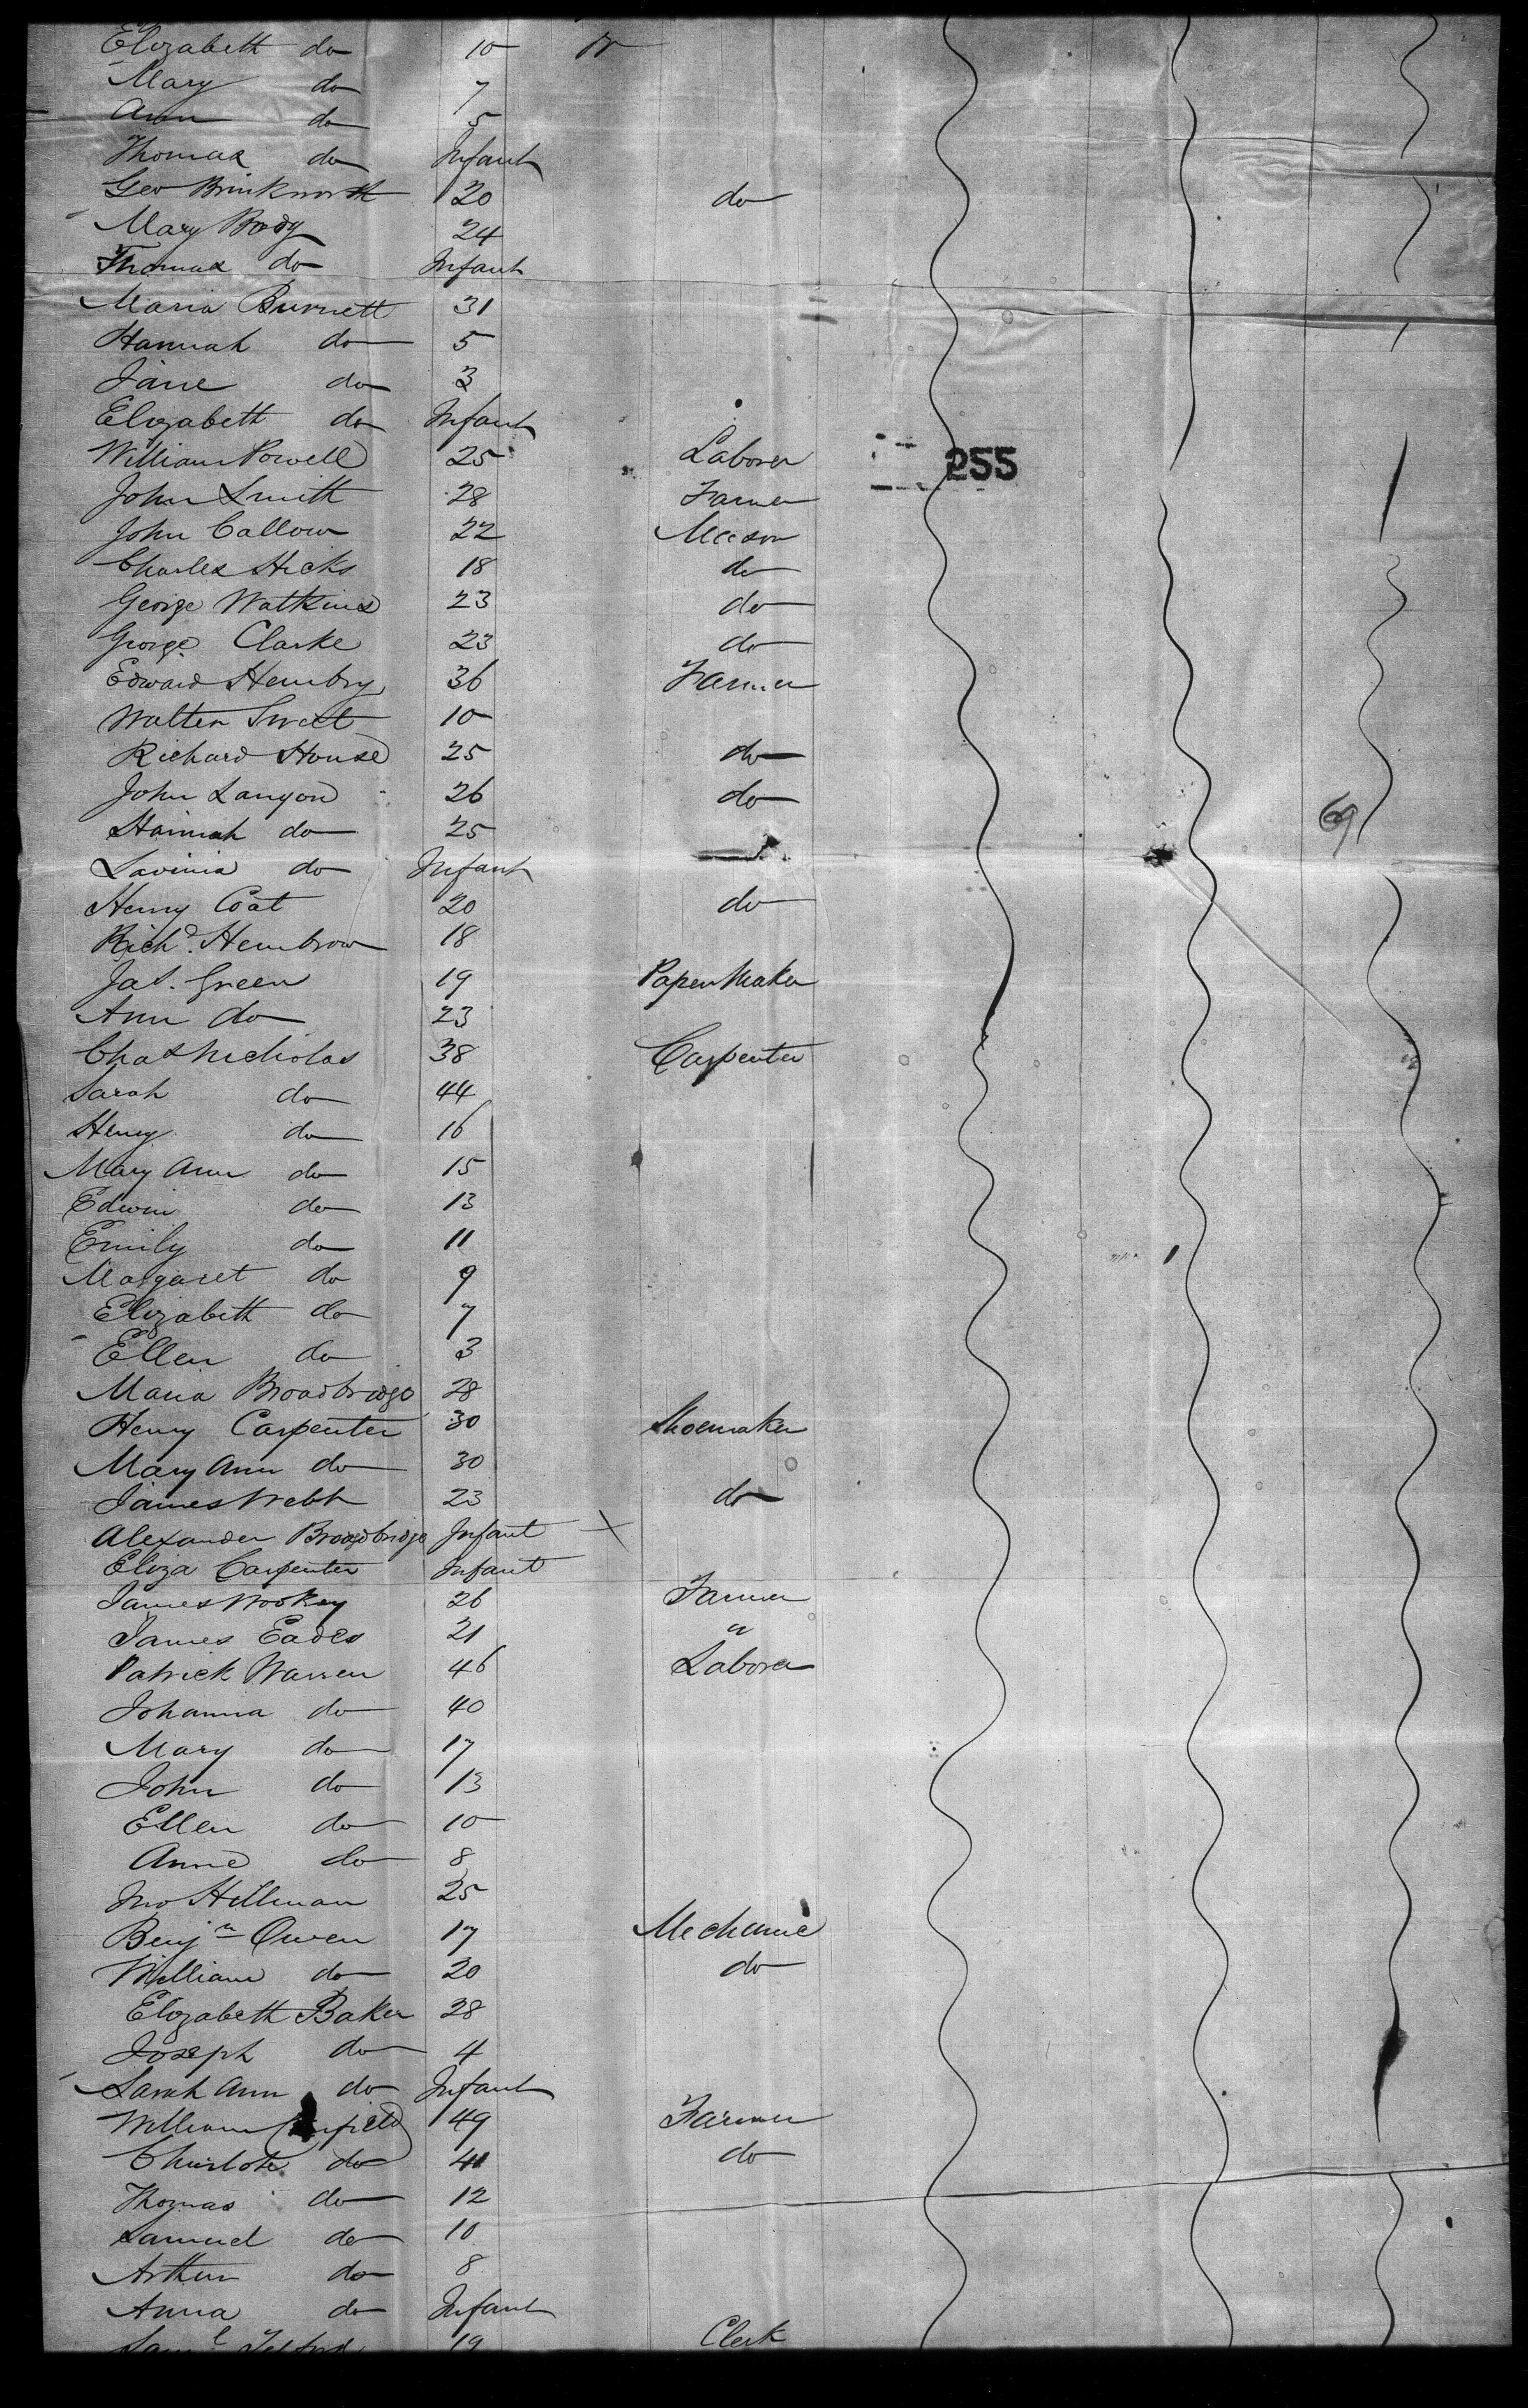 Elizabeth do 10
Mary do 7
Ann do 5
Thomas do Infant
Geo Brinkworth 20 do
Mary Body 24
Thomas do Infant
Maria Burnett 31
Hannah do 5
Jane do 3
Elizabeth do Infant
William Powell 25 Laborer
255
John Smith 28 Farmer
John Callow 22 Mason
Charles Hicks 18 do
George Watkins 23 do
George Clarke 23 do
Edward Hembry 36 Farmer
Walter Sweet 10
Richard House 25 do
John Langon 26 do
69
Hannah do 25
Lavinia do Infant
Henry Coat 20 do
Richd. Hembrow 18
Jas. Green 19 Paper Maker
Ann do 23
Chas Nicholas 38 Carpenter
Sarah do 44
Henry do 16
Mary Ann do 15
Edwin do 13
Emily do 11
Margaret do 9
Elizabeth do 7
Ellen do 3
Maria Broadbridge 28
Henry Carpenter 30 Shoemaker
Mary Ann do 30
James Webb 23 do
Alexander Broadbridge Infant X
Eliza Carpenter Infant
James Wookey 26 Farmer
James Eades 21 "
Patrick Warren 46 Laborer
Johanna do 40
Mary do 17
John do 13
Ellen do 10
Anne do 8
Jno Hillman 25
Benjn Owen 17 Mechanic
William do 20 do
Elizabeth Baker 28
Joseph do 4
Sarah Ann do Infant
William 49 Farmer
Charlote do 41 do
Thomas do 12
Samuel do 10
Arthur do 8
Anna do Infant
Saml 19 Clerk